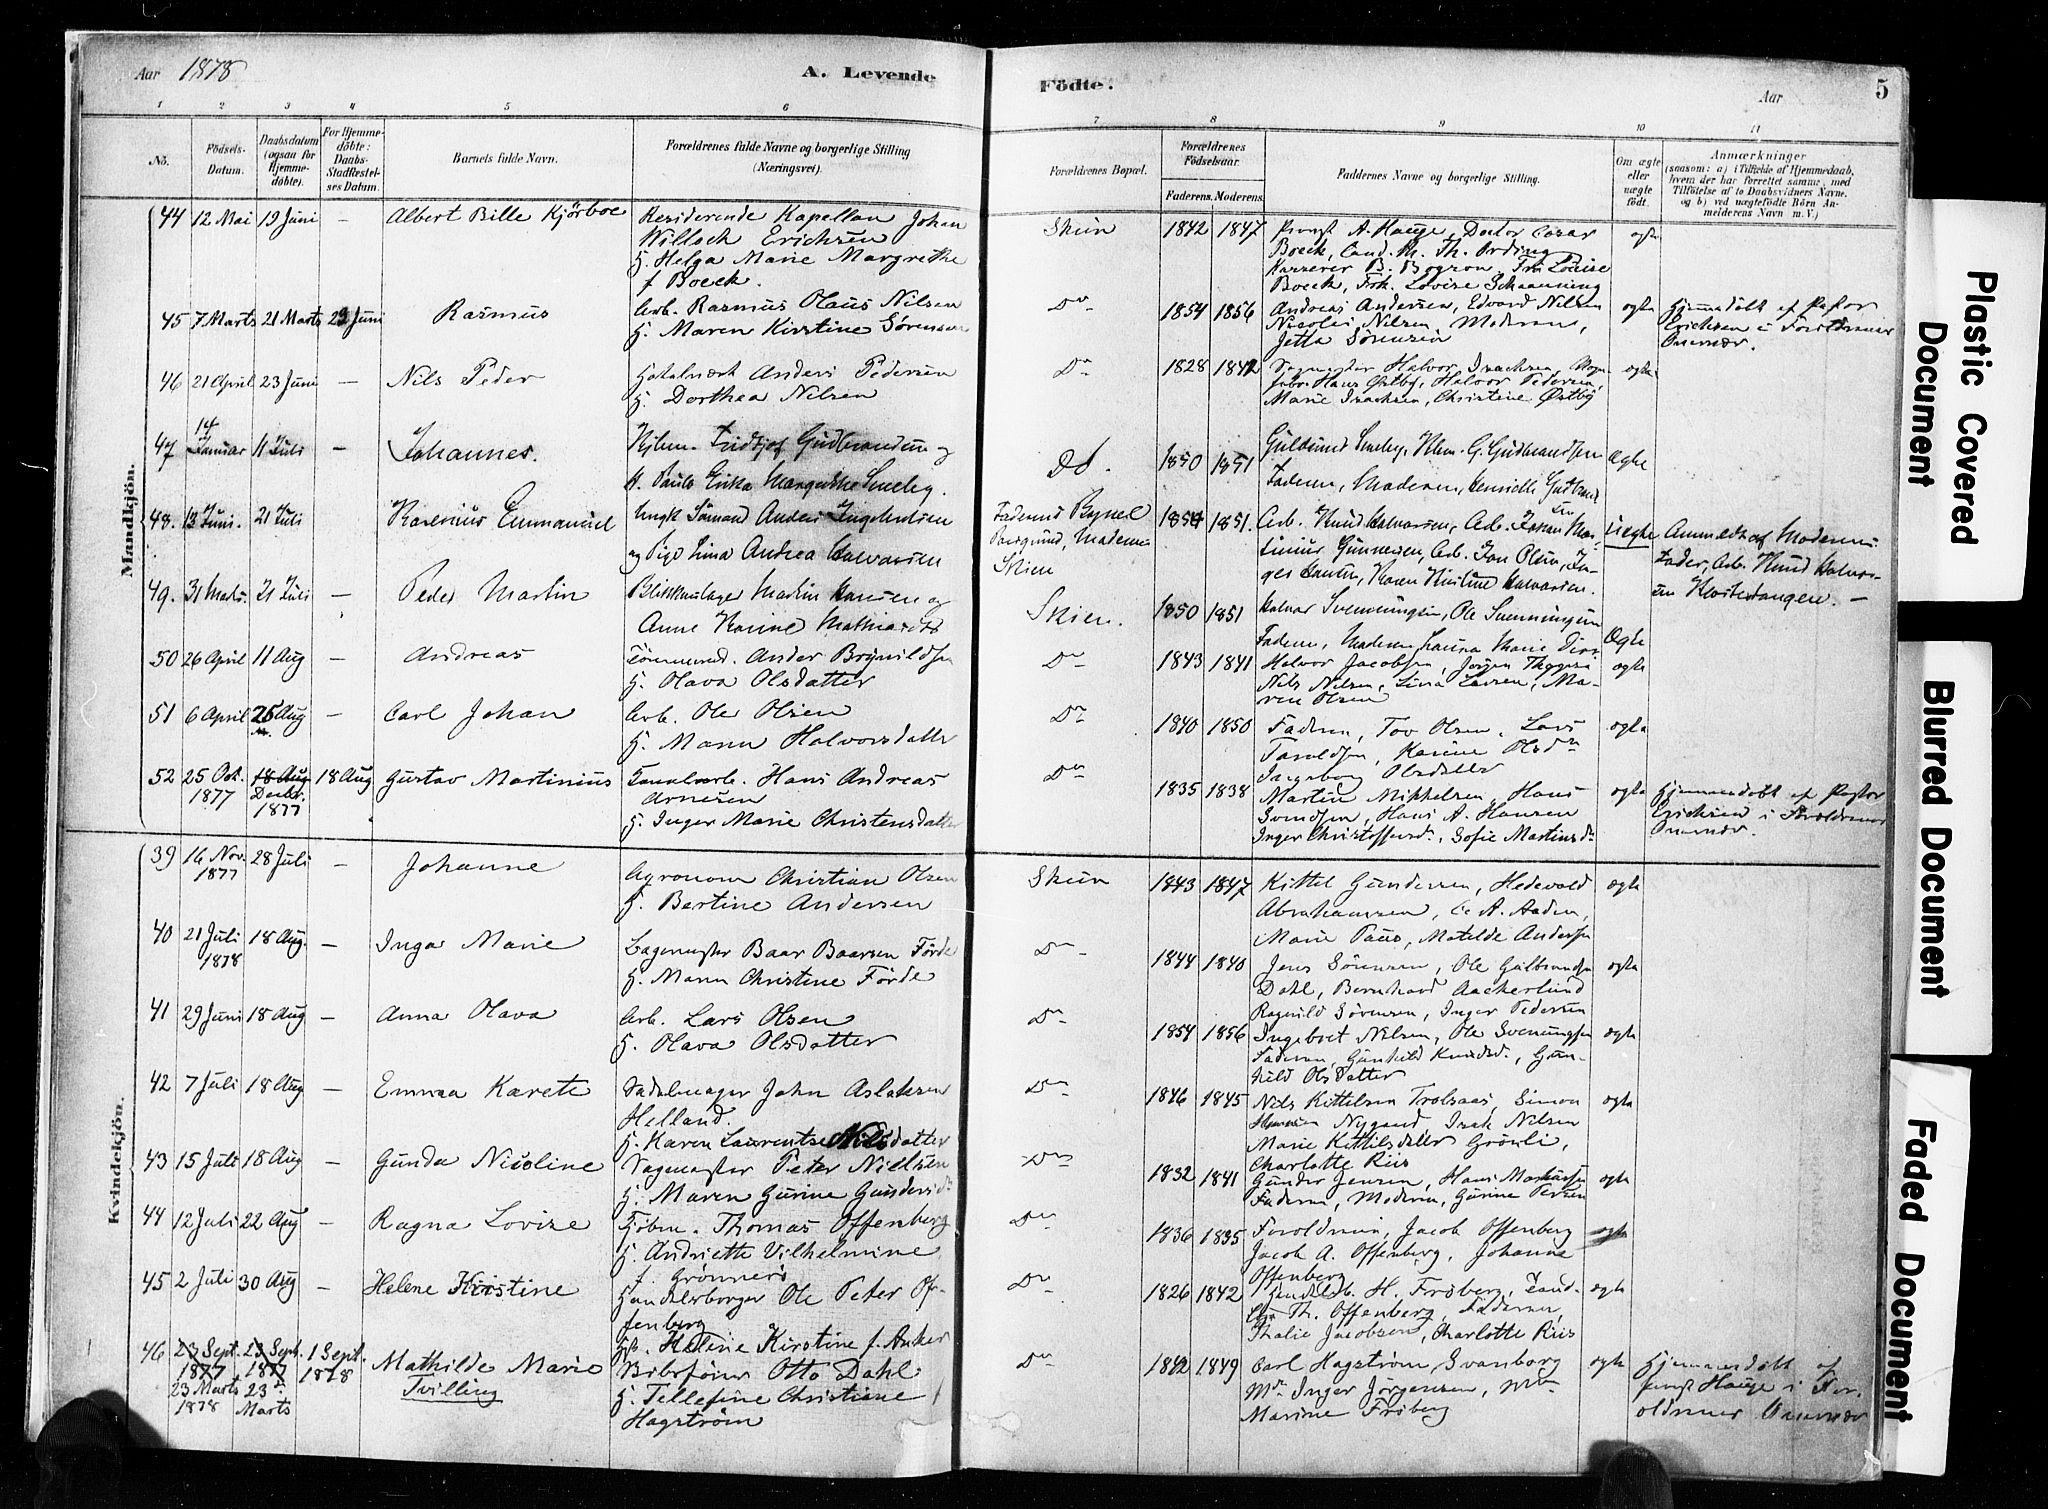 Aar 1878
A. Levende
Födte.
Aar
5
1 2 3 4 5 6 7 8 9 10 11
No.
Födsels-Datum.
Daabsdatum (ogsaa for Hjemmedöbte).
For Hjemmedöbte: Daabs-Stadfæstelses Datum.
Barnets fulde Navn.
Forældrenes fulde Navne og borgerlige Stilling (Næringsvei).
Forældrenes Bopæl.
Forældrenes Födselsaar.
Faderens. Moderens.
Faddernes Navne og borgerlige Stilling.
Om ægte eller uægte födt.
Anmærkninger
(saasom: a) i Tilfælde af Hjemmedaab, hvem der har forrettet samme, med Tilföielse af to Daabsvidners Navne, og b) ved uægtefödte Börn Anmelderens Navn m. V.)
Mandkjön.
44 12 Mai 19 Juni – Albert Bille Kjörboe Residerende Kapellan Johan
Willoch Erichsen
H. Helga Marie Margrethe
f Boeck.
Skien 1842 1847 Provst A. Hauge, Doctor Cæsar
Boeck, Cand. Th. Th. Ording
B. Fru Louise
Boeck, Frk. Lovise Schaanning
ægte
45 7 Marts 21 Marts 23 Juni Rasmus Arb. Rasmus Olaus Nilsen
H. Maren Kirstine Sörensen
Do 1854 1856 Andreas Andersen, Edvard Nilsen
Nicolai Nilsen, Moderen,
Jetta Sörensen
ægte Hjemmedöbt af Pastor
Erichsen i Forældrenes
Nærvær.
46 21 April 23 Juni – Nils Peder Anders Pedersen
H. Dorthea Nilsen
Do 1828 1842 Sagmester Halvor Isachsen,
Hans Østby, Halvor Pedersen,
Marie Isachsen, Christine Østby
ægte
47 14 Januar 11 Juli – Johannes. Fridtjof Gudbrandsen og
H. Paula Erika Margrethe Smeby.
Do. 1850 1851 Guldbrand Smeby, G. Gudbrandsen
Faderen, Moderen, Henriette Gudbrand
Ægte
48. 13 Juni. 21 Juli Emmanuel Ungk Sömand Anders Ingebretsen
og Pige Lina Andrea Halvorsen
Faderens Bopæl
Porsgrund, Moderens
Skien
1854 1851. Arb. Knud Halvorsen, Arb. Johan Mar-
tinius Gunnersen, Arb. Jan Olsen,
Hansen, Karen Kirstine Halvorsen.
Uægte Anmeldt af Moderens
Fader, Arb. Knud Halvor-
sen Klosterhaugen. –
49. 31 Marts. 21 Juli – Peder Martin Blikkenslager Martin Hansen og
Anne Karine
Skien. 1850 1851 Halvor Svenningsen, Ole Svenningsen
Faderen, Moderen, Laura Marie
Ægte
50 26 April 11 Aug – Andreas Tömmermd. Anders Brynildsen
H. Olava Olsdatter
Do 1843 1841 Halvor Jacobsen, Jörgen
Nils Nilsen, Lina Larsen, Ma-
ren Olsen
ægte
51 6 April 25 Aug – Carl Johan Arb. Ole Olsen
H. Maren Halvorsdatter
Do 1840 1850 Faderen, Tov Olsen, Lars
Taraldsen, Karine Olsdr
Ingeborg Olsdatter
ægte
52 25 Oct. 1877 18 Aug Decbr. 1877 18 Aug Gustav Martinius Hans Andreas
Arnesen
H. Inger Marie Christensdatter
Do 1835 1838 Martin Mikkelsen, Hans
Svendsen, Hans A. Hansen
Inger Christoffersd., Sofie Martinsd.
ægte Hjemmedöbt af Pastor
Erichsen i Forældrenes
Nærvær.
Kvindekjön.
39 16 Nov. 1877 28 Juli – Johanne Agronom Christian Olsen
H. Bertine Andersen
Skien 1843 1847 Kittel Gundersen, Hedevold
Abrahamsen, C. A. Aaden,
Marie Paus, Matilde Andersen
ægte
40 21 Juli 1878 18 Aug. – Inga Marie Lagemester Baar Baarsen Förde
H. Maren Christine Förde
Do 1844 1840 Jens Sörensen, Ole Gulbrandsen
Dahl, Bernhard Aackerlund
Ragnild Sörensen, Inger Pedersen
ægte
41 29 Juni 18 Aug – Anna Olava Arb. Lars Olsen
H. Olava Olsdatter
Do 1854 1856 Ingebret Nilsen, Ole Svenungsen
Faderen, Gunhild Knudsd., Gun-
hild Olsdatter
ægte
42 7 Juli 18 Aug – Emma Karete Sadelmager John Aslaksen
Helland.
H. Karen Laurentse Nilsdatter
Do 1846 1845 Nils Kittelsen Trolsaas, Simon
Nygaard, Isak Nilsen
Marie Kittilsdatter Grönli,
Charlotte Riis
ægte
43 15 Juli 18 Aug – Gunda Nicoline Sagmester Peter Nielsen
H. Maren Gurine Gundersd.
Do 1832 1841 Gunder Jensen, Hans Markussen
Faderen, Moderen, Gurine Persen
ægte
44 12 Juli 22 Aug – Ragna Lovise Kjöbm. Thomas Offenberg
H. Andriette Vilhelmine
f. Grönners
Do 1836 1835 Forældrene, Jacob Offenberg
Jacob A. Offenberg, Johanne
Offenberg
ægte
45 2 Juli 30 Aug – Helene Kristine Handelsborger Ole Peter Of-
fenberg
H. Helene Kirstine f. Anker
Do 1826 1842 Handelsb. H. Fröberg,
Th. Offenberg, Faderen,
Thalie Jacobsen, Charlotte Riis
ægte
46 23 Sept. 1877 23 Marts 1878 23 Sept. 1877 23de Marts 1 Sept. 1878 Mathilde Marie
Tvilling
Otto Dahl
H. Tellefine Christiane
Hagström
Do 1842 1849 Carl Hagström, Svanborg
Md. Inger Jörgensen, Md.
Marine Fröberg
ægte Hjemmedöbt af
Provst Hauge i For-
ældrenes Nærvær
Plastic Covered Document
Blurred Document
Faded Document